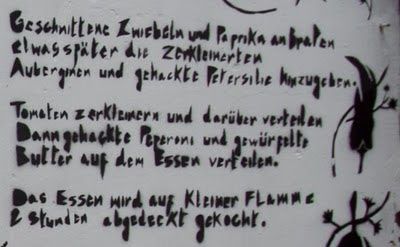 Geschnittene Zwiebeln und Paprika anbraten
etwas später die zerkleinerten
Auberginen und gehackte Petersilie hinzugeben.
Tomaten zerkleinern und darüber verteilen
Dann gehackte Peperoni und gewürfelte
Butter auf dem Essen verteilen.
Das Essen wird auf kleiner Flamme
2 Stunden abgedeckt gekocht.